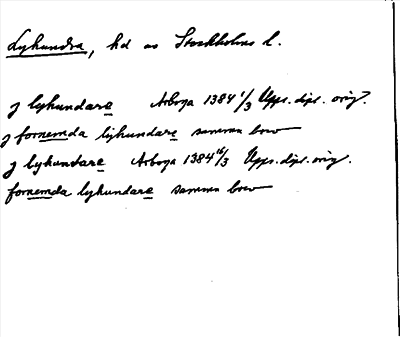 Lyhundra, hd av Stockholms l.
j lyhundare Arboga 1384 1/3 Upps. dipl. orig.
j fornemda lyhundare samma brev
j lyhundare Arboga 1384 16/3 Upps. dipl. orig.
fornemda lyhundare samma brev